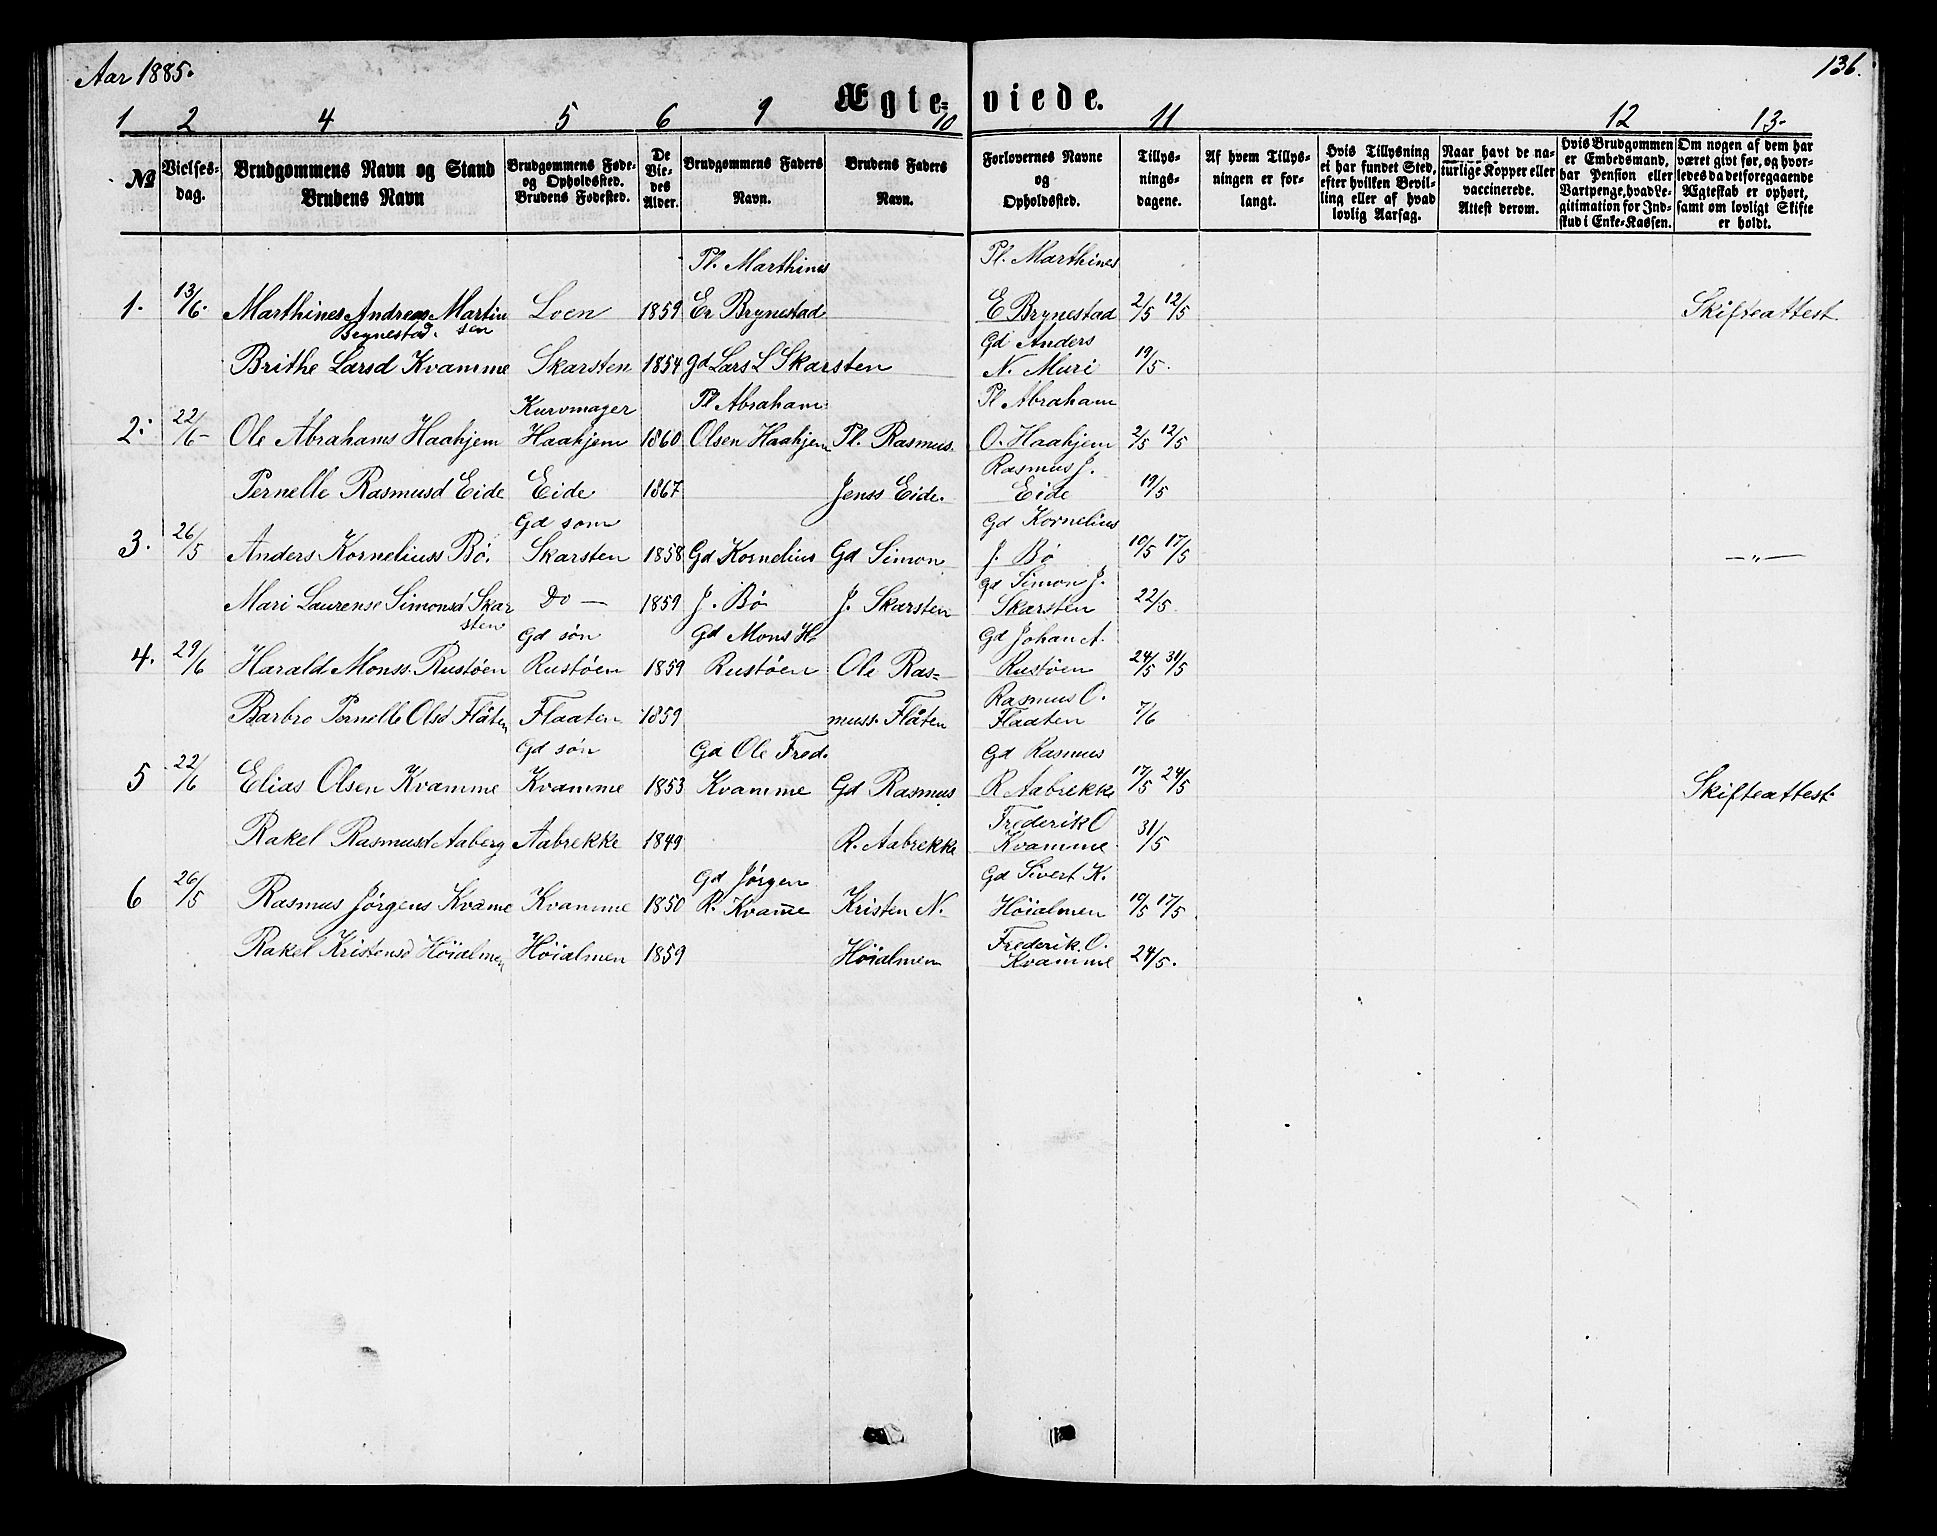 Aar 1885.
136.
Ægte- viede.
1 2 4 5 6 9 10 11 12 13.
№
Vielses-
dag.
Brudgommens Navn og Stand
Brudens Navn
Brudgommens Føde-
og Opholdssted.
Brudens Fødested.
De
Vie-
des
Alder.
Brudgommens Faders
Navn.
Brudens Faders
Navn.
Forlovernes Navne
og
Opholdssted.
Tillys-
nings-
dagene.
Af hvem Tillys-
ningen er for-
langt.
Hvis Tillysning
ei har fundet Sted,
efter hvilken Bevil-
ling eller af hvad
lovlig Aarsag.
Naar havt de na-
turlige Kopper eller
vaccinerede.
Attest derom.
Hvis Brudgommen
er Embedsmand,
har Pension eller
Vartpenge, hvad Le-
gitimation for Ind-
skud i Enke-Kassen.
Om nogen af dem har
været givt før, og hvor-
ledes da det foregaaende
Ægteskab er ophørt,
samt om lovligt Skifte
er holdt.
Pl. Marthines Pl. Marthines
1. 13/6. Marthines Andreas Martin Loen 1859 Er Brynestad E Brynestad 2/5 12/5 Skifteattest
Brynestad. sen
Gd Anders
Brithe Larsd Kvamme Skarsten 1854 Gd Lars L Skarsten N. Muri 19/5.
Kurvmager Pl Abraham Pl Abraham
2. 22/6 Ole Abrahams Haahjem Haahjem 1860 Olsen Haahjem Pl. Rasmus O. Haahjem 2/5 12/5
Rasmus J.
Pernelle Rasmusd Eide Eide 1867 Jenss Eide. Eide 19/5
Gd som Gd Kornelius
3. 26/5 Anders Korneliuss Bö. Skarsten 1858 Gd Kornelius Gd Simon J. Bö 10/5 17/5 —"—
Gd Simon J.
Mari Laurense Simonsd Skar Do — 1859 J. Bö J. Skarsten Skarsten 22/5
sten
Gd søn Gd Mons H Gd Johan A.
4. 29/6 Harald Monss. Rustöen Rustöen 1859 Rustöen Ole Ras- Rustöen 24/5 31/5
Rasmus O.
Barbro Pernelle Olsd Flåten Flaaten 1859 muss. Flåten Flaaten 7/6
Gd søn Gd Ole Fred. Gd Rasmus
5 22/6 Elias Olsen Kvamme Kvamme 1853 Kvamme Gd Rasmus R Aabrekke 17/5 24/5 Skifteattest
Frederik O
Rakel Rasmusd Aaberg Aabrekke 1849 R. Aabrekke Kvamme 31/5
Gd Jörgen Gd Sivert K.
6 26/5 Rasmus Jörgens Kvame Kvamme 1850 R. Kvame Kristen N. Höialmen 10/5 17/5
Frederik. O.
Rakel Kristensd Höialmen Höialmen 1859 Höialmen Kvamme 24/5.